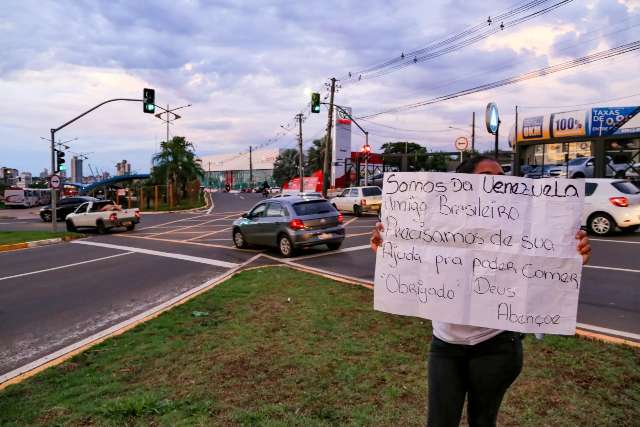 Somos Da Venezuela
Amigo Brasileiro
Precisamos de sua
Ajuda pra poder Comer
"Obrigado" Deus
Abençoe
0KM
100%
TAXAS
DE